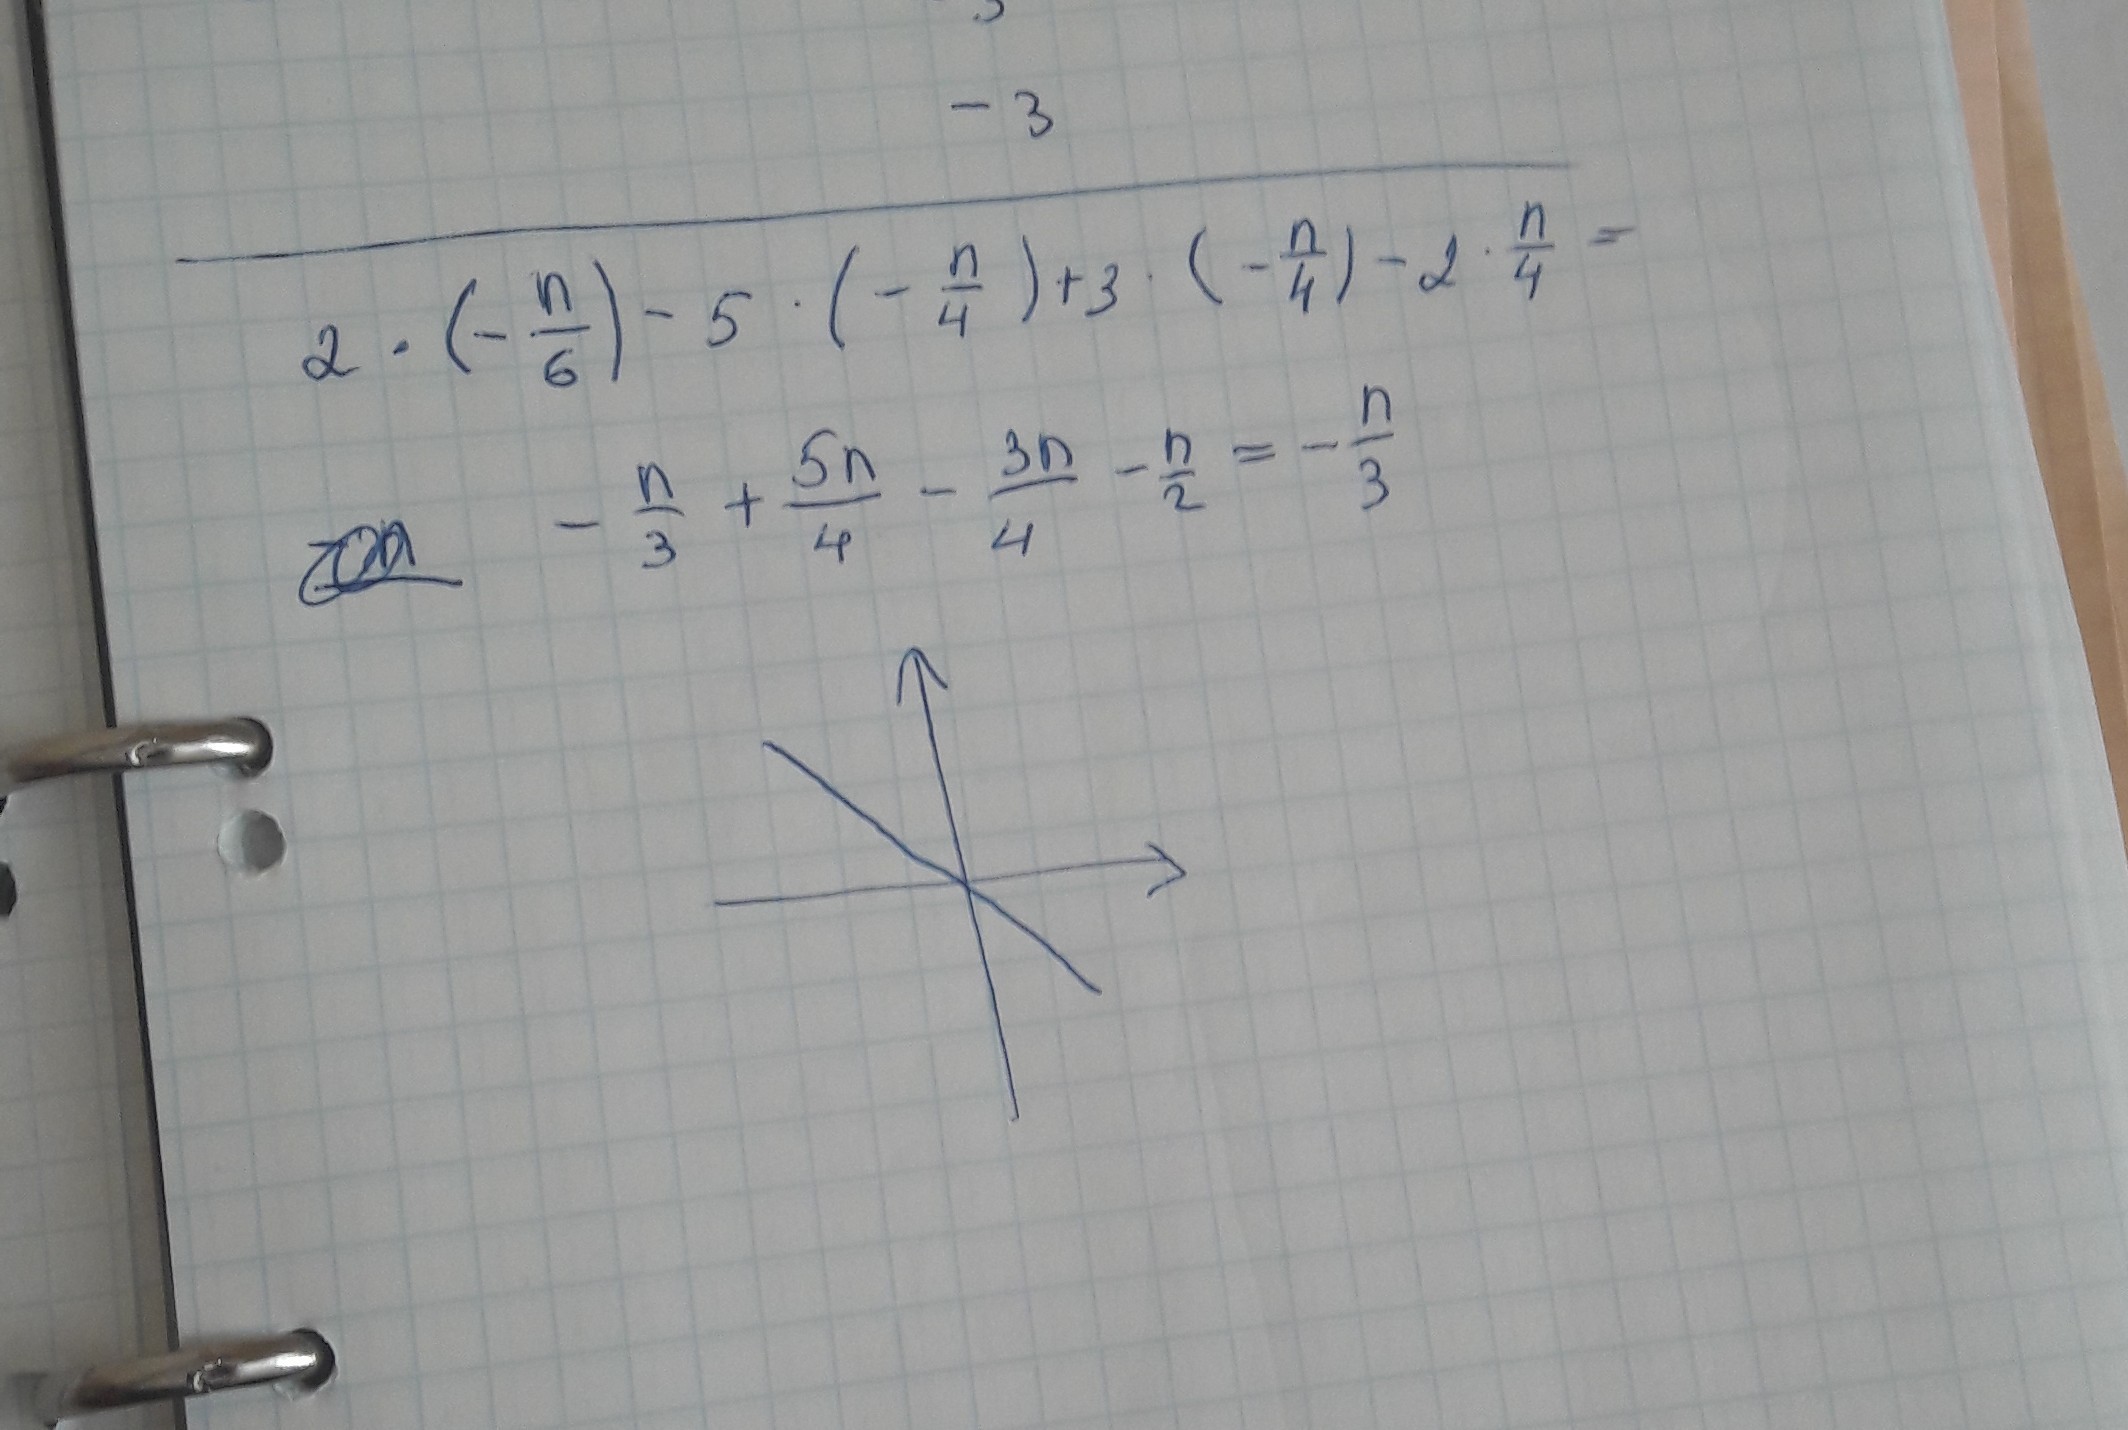 - 3
2 · (- n/6) - 5 · (- n/4) + 3 · (- n/4) - 2 · n/4 =
- n/3 + 5n/4 - 3n/4 - n/2 = - n/3